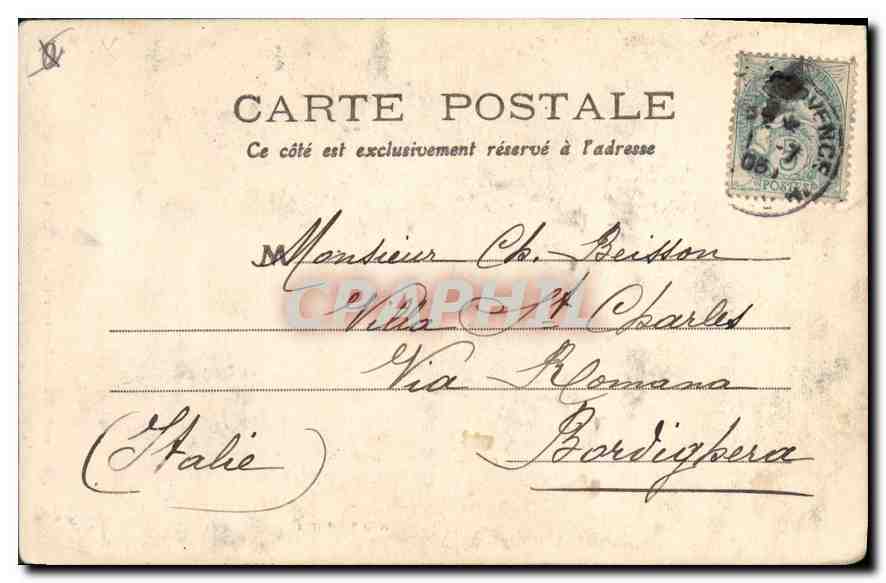 CARTE POSTALE
Ce côté est exclusivement réservé à l'adresse
OVENCE
5
POSTES
Monsieur Ch. Beisson
CPAPHIL
Villa St Charles
Via Romana
(Italie)
Bordighera